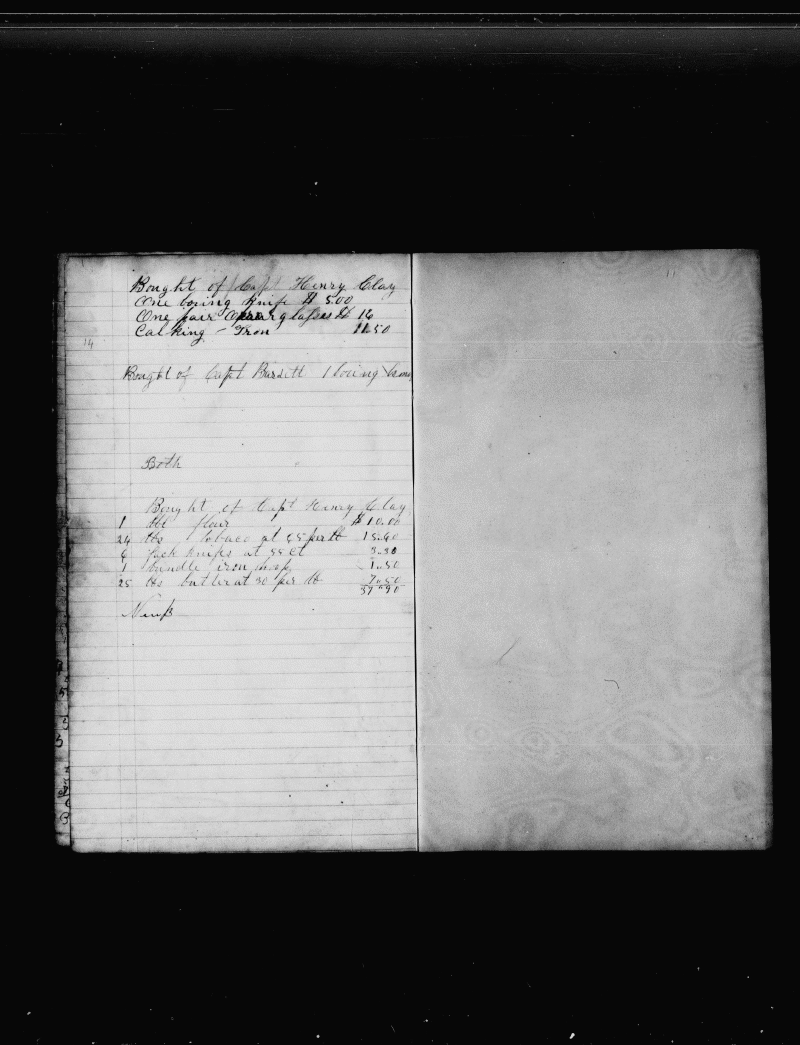 Bought of Capt Henry Clay
One boring Knife $ 5.00
One pair Operarglasses $ 16
Calking - Iron 11.50
14
Bought of Capt Burditt 1 boring
Both
Bought of Capt Henry Clay
1 bbl flour $ 10.00
24 lbs tobaco at 65 per lb 15.60
6 jack knifes at 55 ct 3.30
1 bundle iron hoop 1.50
25 lbs butter at 30 per lb 7.50
37.90